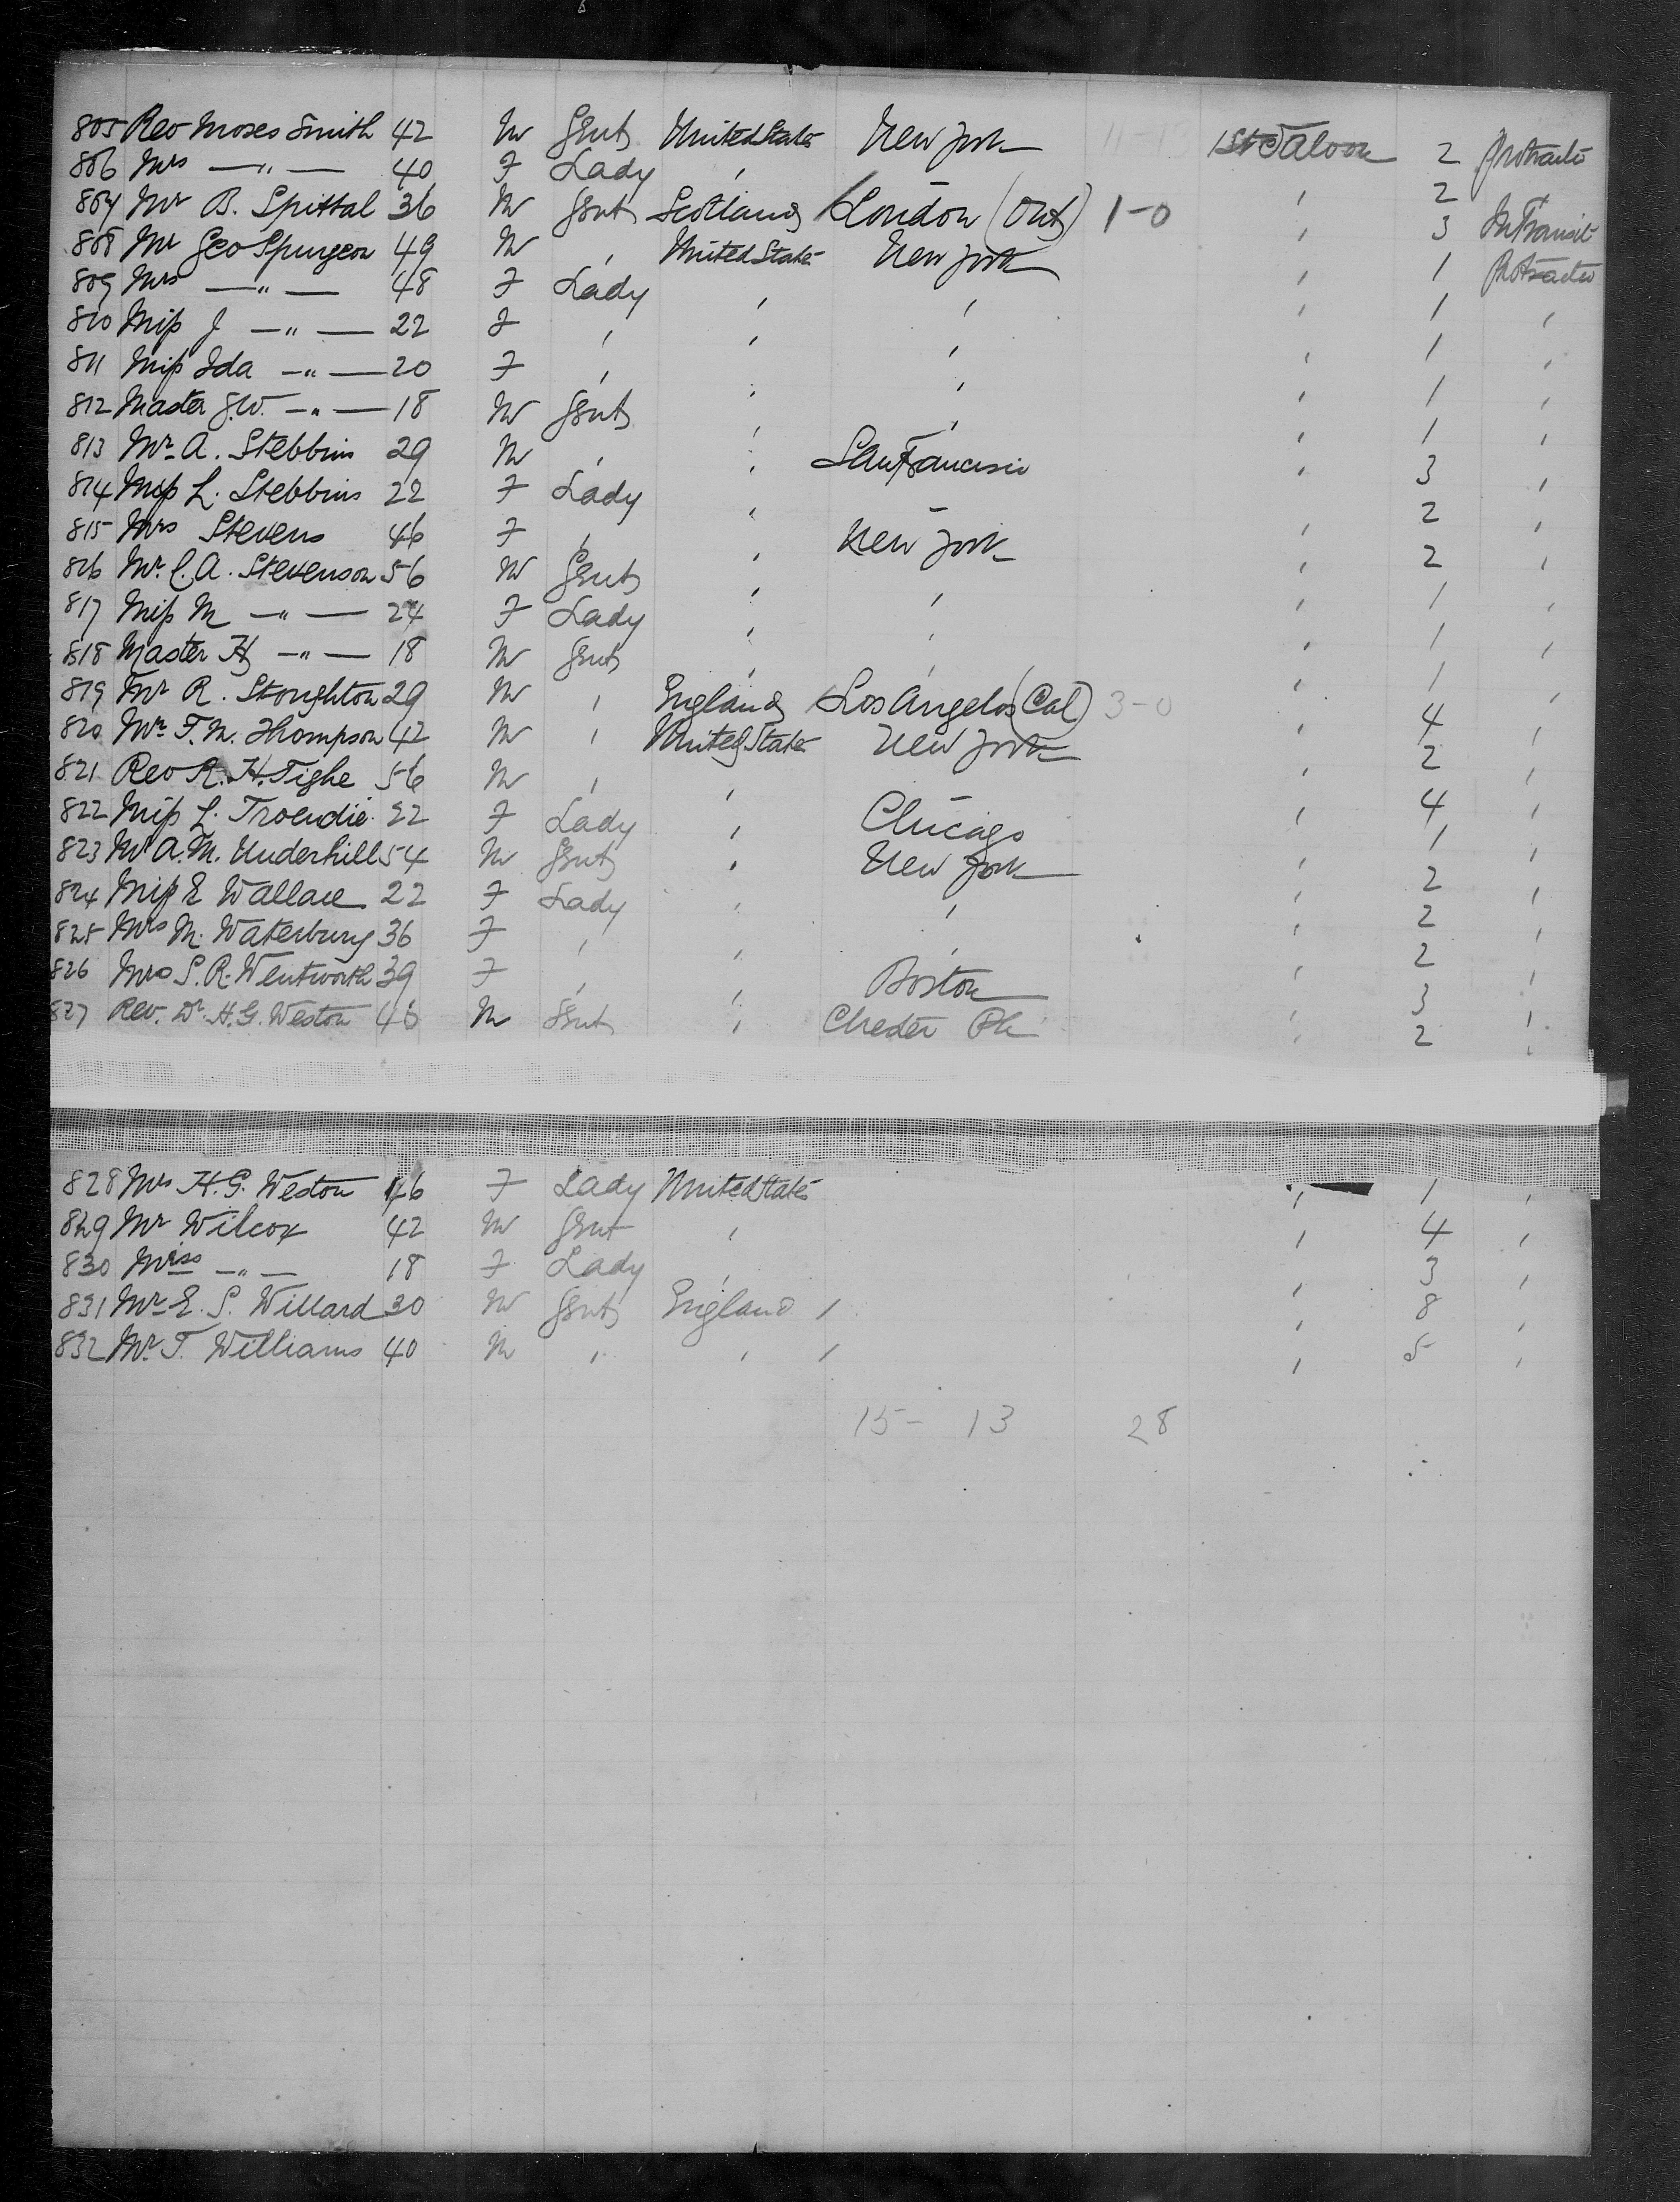 805 Rev Moses Smith 42 M Gent United States New York 11-13 1st Saloon 2 Protracted
806 Mrs —〃— 40 F Lady ' ' 2 '
807 Mr B. Spittal 36 M Gent Scotland London (Ont) 1-0 ' 3 InTransit
808 Mr Geo Spurgeon 49 M ' United States New York ' 1 Protracted
809 Mrs —〃— 48 F Lady ' ' ' 1 '
810 Miss J —〃— 22 F ' ' ' ' 1 '
811 Miss Ida —〃— 20 F ' ' ' ' 1 '
812 Master G.W. —〃— 18 M Gent ' ' ' 1 '
813 Mr A. Stebbins 29 M ' ' San Francisco ' 3 '
814 Miss L. Stebbins 22 F Lady ' ' 2 '
815 Mrs Stevens 46 F ' ' New York ' 2 '
816 Mr C.A. Stevenson 56 M Gent ' ' ' 1 '
817 Miss M —〃— 24 F Lady ' ' ' 1 '
818 Master H —〃— 18 M Gent ' ' ' 1 '
819 Mr R. Stoughton 29 M ' England Los Angelos (Cal) 3-0 ' 4 '
820 Mr F.M. Thompson 42 M ' United States New York ' 2 '
821 Rev R.H. Tighe 56 M ' ' ' ' 4 '
822 Miss L. Troendie 22 F Lady ' Chicago ' 1 '
823 Mr A.M. Underhill 54 M Gent ' New York ' 2 '
824 Miss E Wallace 22 F Lady ' ' ' 2 '
825 Mrs M. Waterbury 36 F ' ' ' ' 2 '
826 Mrs S.R. Wentworth 39 F ' ' Boston ' 3 '
827 Rev. Dr. H.G. Weston 46 M Gent ' Chester Ph ' 2 '
828 Mrs H.G. Weston 46 F Lady United States ' 1 '
829 Mr Wilcox 42 M Gent ' ' 4 '
830 Miss —〃— 18 F Lady ' ' 3 '
831 Mr E. S. Willard 30 M Gent England / ' 8 '
832 Mr T. Williams 40 M ' ' / ' 5 '
15- 13 28